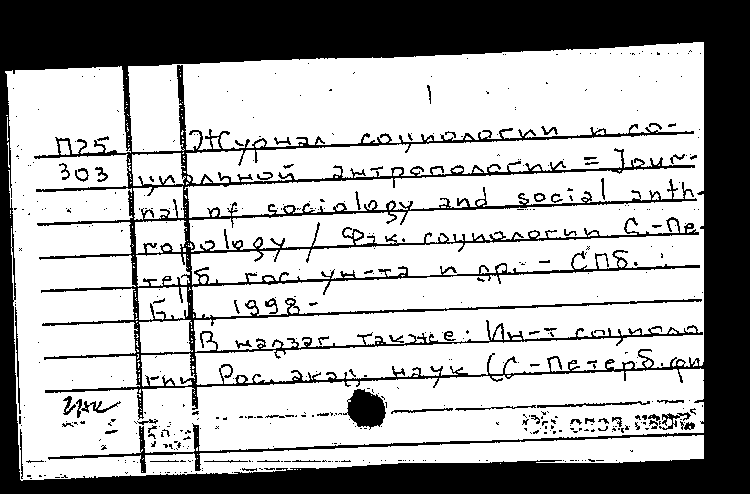 П25 Журнал социологии и со-
303 циальной антропологии = Jour-
nal of sociology and social anth-
ropology / Фак. социологии С.-Пе-
терб. гос. ун-та и др. - СПб. :
Б.и., 1998-
В надзаг. также: Ин-т социоло
гии Рос. акад. наук (С.-Петерб. фи